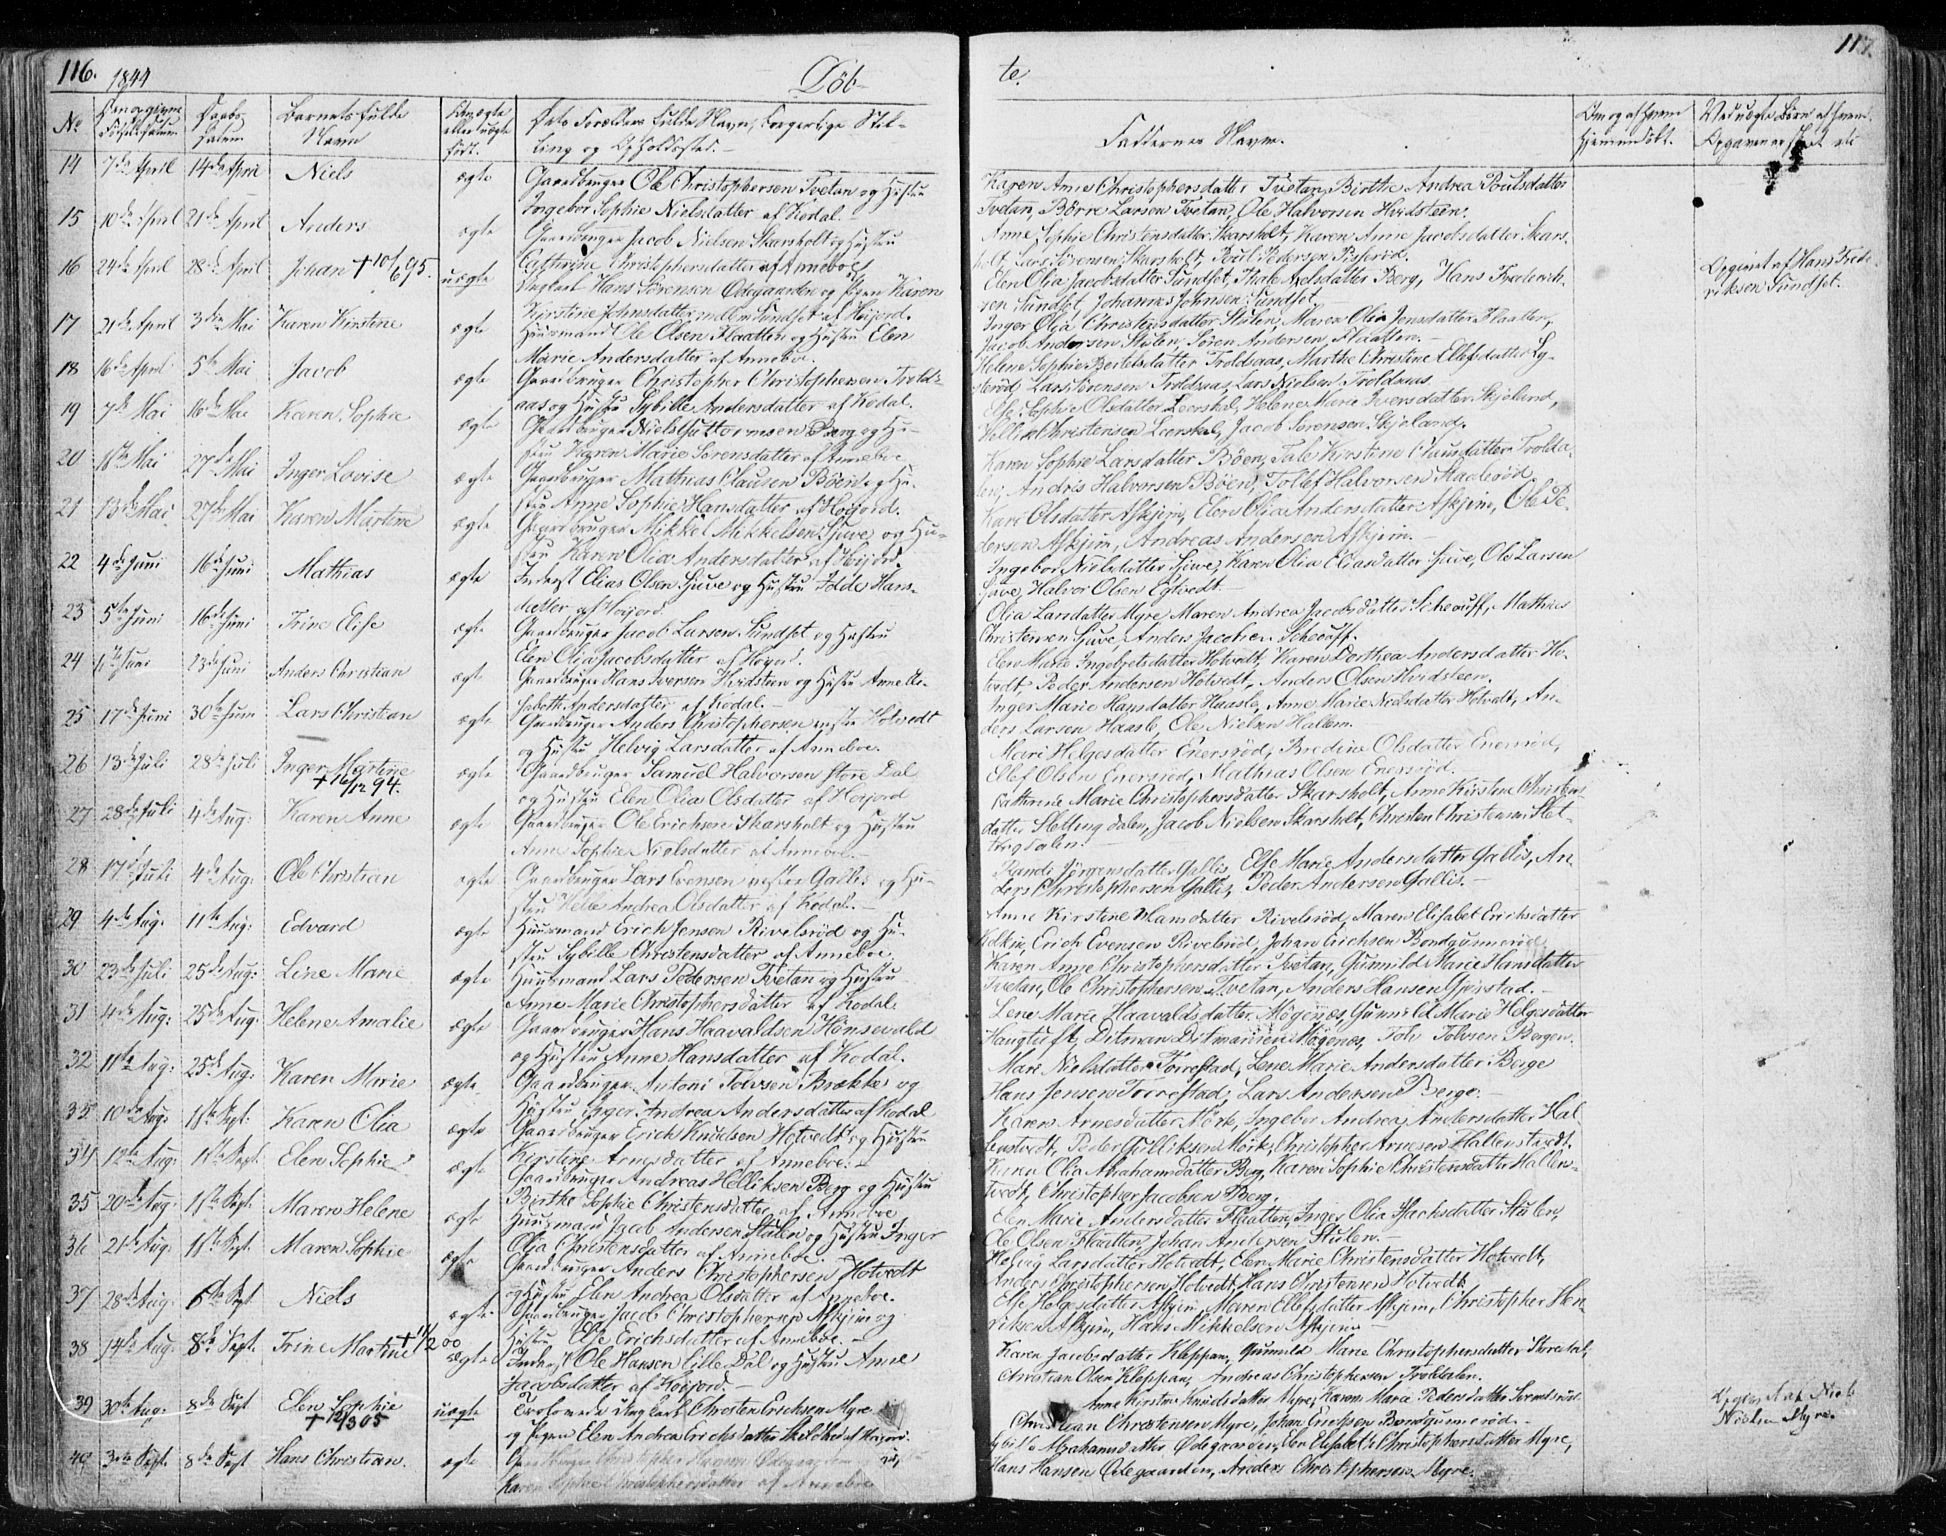 116. 1844 Döb-
No Barnets fulde Navn
14 7de April 14de April Niels ægte Gaardbruger Ole Christophersen Tvetan og Hustru
Ingebor Sophie Nielsdatter af Kodal.
15 10de April 21de April Anders ægte Gaardbruger Jacob Nielsen Skarsholt og Hustru
Cathrine Christophersdatter af Anneboe.
16 24de April 28de April Johan + 10/6 95. uægte Ungkarl Hans Sörensen Ödegaarden og Pigen Karen
Kirstine Johnsdatter Sundset af Höijord.
17 21de April 3die Mai Karen Kirstine ægte Huusmand Ole Olsen Flaatten og Hustru Elen
Marie Andersdatter af Anneboe.
18 16de April 5te Mai Jacob ægte Gaardbruger Christopher Christophersen Trolds-
aas og Hustru Sybille Andersdatter af Kodal.
19 7de Mai 16de Mai Karen Sophie ægte Gaardbruger Niels Guttormsen Berg og Hu-
stru Karen Marie Sörensdatter af Anneboe
20 18de Mai 27de Mai Inger Lovise ægte Gaardbruger Mathias Clausen Böen og Hu-
stru Anne Sophie Hansdatter af Höijord.
21 13de Mai 27de Mai Karen Martine ægte Gaardbruger Mikkel Mikkelsen Sjuve og Hu-
stru Karen Olia Andersdatter af Höijord.
22 4de Juni 16de Juni Mathias ægte Inderst Elias Olsen Sjuve og Hustru Hans-
datter af Höijord.
23 5te Juni 16de Juni Trine Elise ægte Gaardbruger Jacob Larsen Sundset og Hustru
Elen Olia Jacobsdatter af Höijord.
24 Juni 23de Juni Anders Christian ægte Gaardbruger Hans Iversen Hvidsteen og Hustru Anne Eli-
sabeth Andersdatter af Kodal.
25 17de Juni 30te Juni Lars Christian ægte Gaardbruger Anders Christophersen Hotvedt
og Hustru Helvig Larsdatter af Anneboe.
26 13de Juli 28de Juli Inger Martine + 16/12 94. ægte Gaardbruger Samuel Halvorsen store Dal
og Hustru Elen Olia Olsdatter af Höijord
27 28de Juli 4de Aug: Karen Anne ægte Gaardbruger Ole Erichsen Skarsholt og Hustru
Anne Sophie Nielsdatter af Anneboe.
28 17de Juli 4de Aug. Ole Christian ægte Gaardbruger Lars Evensen Gallis og Hu-
stru Helle Andrea Olsdatter af Kodal.
29 4de Aug. 11te Aug: Edvard ægte Huusmand Erich Jensen Rivelsröd og Hu-
stru Sybille Christensdatter af Anneboe
30 23de Juli 25de Aug: Line Marie ægte Huusmand Lars Pedersen Tvetan og Hustru
Anne Marie Christophersdatter af Kodal.
31 4de Aug: 25de Aug: Helene Amalie ægte Gaardbruger Hans Haavaldsen Hönsevald
og Hustru Anne Hansdatter af Kodal.
32 11te Aug: 25de Aug: Karen Marie ægte Gaardbruger Antoni Tolvsen Brække og
Hustru Inger Andrea Andersdatter af Kodal
33 10de Aug: 1ste Sept. Karen Olia ægte Gaardbruger Erich Knudsen Hotvedt og Hustru
Kirstine Arnesdatter af Anneboe.
34 12te Aug: 1ste Sept. Elen Sophie ægte Gaardbruger Andreas Helliksen Berg og Hustru
Birthe Sophie Christensdatter af Anneboe
35 20de Aug: 1ste Sept. Maren Helene ægte Huusmand Jacob Andersen Stulen og Hustru Inger
Olia Christensdatter af Anneboe.
36 21de Aug: 1ste Sept. Maren Sophie ægte Gaardbruger Anders Christophersen Hotvedt
og Hustru Elen Andrea Olsdatter af Anneboe.
37 28de Aug: 6te Sept. Niels ægte Gaardbruger Jacob Christophersen Askjim og
Hustru Else Erichsdatter af Anneboe.
38 14de Aug: 8de Sept. Trine Martine + 11/2 00 ægte Inderst Ole Hansen lille Dal og Hustru Anne
Jacobsdatter af Höijord.
39 30te Aug. 8de Sept Elen Sophie + 12/3 05 uægte Trolovede Ungkarl Christen Erichsen Myre
og Pigen Elen Andrea Erichsdatter af Höijord.
40 3die Sept. 8de Sept Hans Christian. ægte Gaardbruger Christopher Hansen Ödegaarden og
Karen Sophie Christophersdatter af Anneboe
te. 117.
Faddernes Navn.
Karen Anne Christophersdatter Tvetan, Birthe Andrea Poulsdatter
Tvetan, Börre Larsen Tvetan, Ole Halvorsen Hvidsteen.
Anne Sophie Christensdatter Skarsholt, Karen Anne Jacobsdatter Skars-
holt, Lars Sörensen Skarsholt, Poul Pedersen
Elen Olia Jacobsdatter Sundset, Thale Axelsdatter Berg, Hans Frederik-
sen Sundset, Johannes Johnsen Sundset. Opgivet af Hans Frede-
riksen Sundset.
Inger Olia Christensdatter Stulen, Maren Olia Jensdatter Flaatten,
Jacob Andersen Stulen, Sören Andersen Flaatten.
Helene Sophie Bertelsdatter Troldsaas, Marthe Christine Ellefsdatter Ly-
steröd, Lars Sörensen Troldsaas, Lars Nielsen Troldsaas
Else Sophie Olsdatter Leerskal, Helene Marie Iversdatter Skjeland,
Hellik Christensen Leerskal, Jacob Sörensen Skjeland.
Karen Sophie Larsdatter Böen, Tale Kirstine Clausdatter Trolda-
len, Andris Halvorsen Böen, Tollef Halvorsen
Kari Olsdatter Askjim, Elen Olia Andersdatter Askjim, Ole Pe-
dersen Askjim, Andreas Andersen Askjim.
Ingebor Nielsdatter Sjuve, Karen Olia Eliasdatter Sjuve, Ole Larsen
Sjuve, Halvor Olsen Egtvedt.
Olia Larsdatter Myre, Maren Andrea Jacobsdatter Scheouff, Mathias
Christensen Sjuve, Anders Jacobsen Scheouff.
Elen Marie Ingebretsdatter Hotvedt, Karen Dorthea Andersdatter Ho-
tvedt, Peder Andersen Hotvedt, Anders Olsen Hvidsteen.
Inger Marie Hansdatter Haasle, Anne Marie Nielsdatter Hotvedt, An-
ders Larsen Haasle, Ole Nielsen Hallem.
Mari Helgesdatter Enersröd, Bredine Olsdatter Enersröd,
Ellef Olsen Enersröd, Mathias Olsen Enersröd.
Cathrine Marie Christophersdatter Skarsholt, Anne Kirstine Christens-
datter Slettingdalen, Jacob Nielsen Skarsholt, Christen Christensen Slet-
tingdalen.
Randi Jörgensdatter Gallis, Else Marie Andersdatter Gallis, An-
ders Christophersen Gallis, Peder Andersen Gallis.
Anne Kirstine Hansdatter Rivelsröd, Maren Elisabet Erichsdatter
Erich Evensen Rivelsröd, Johan Erichsen Bondgunneröd
Karen Anne Christophersdatter Tvetan, Gunnild Marie Hansdatter
Tvetan, Ole Christophersen Tvetan, Anders Hansen Gjerstad.
Lene Marie Haavaldsdatter Mögenes, Gunnild Marie Helgesdatter
Haugtuft, Ditman Ditmansen Mögenes, Tolv Tolvsen Bergen.
Mari Nielsdatter Torrestad, Lene Marie Andersdatter Berge
Hans Jensen Torrestad, Lars Andersen Berge.
Karen Arnesdatter Mörk, Ingebor Andrea Andersdatter Hal-
lenstvedt, Peder Gulliksen Mörk, Christopher Arnesen Hallenstvedt.
Karen Olia Abrahamsdatter Berg, Karen Sophie Christensdatter Hallens-
tvedt, Christopher Jacobsen Berg.
Elen Marie Andersdatter Flaatten, Inger Olia Isachsdatter Stulen,
Ole Olsen Flaatten, Johan Andersen Stulen.
Helvig Larsdatter Hotvedt, Elen Marie Christensdatter Hotvedt,
Anders Christophersen Hotvedt, Hans Christensen Hotvedt.
Else Helgesdatter Askjim, Maren Ellefsdatter Askjim, Christopher Hen-
riksen Askjim, Hans Mikkelsen Askjim.
Karen Jacobsdatter Kleppan, Gunnild Marie Christophersdatter
Christian Olsen Kleppan, Andreas Christophersen Troldalen.
Anne Kirstine Knudsdatter Myre, Karen Marie Pedersdatter
Christian Christensen Myre, Johan Erichsen Bondgunneröd. Opgivet af Niels
Nielsen Myre.
Sybille Abrahamsdatter Ödegaarden, Elen Elisabet Christophersdatter Myre,
Hans Hansen Ödegaarden, Anders Christophersen Myre.